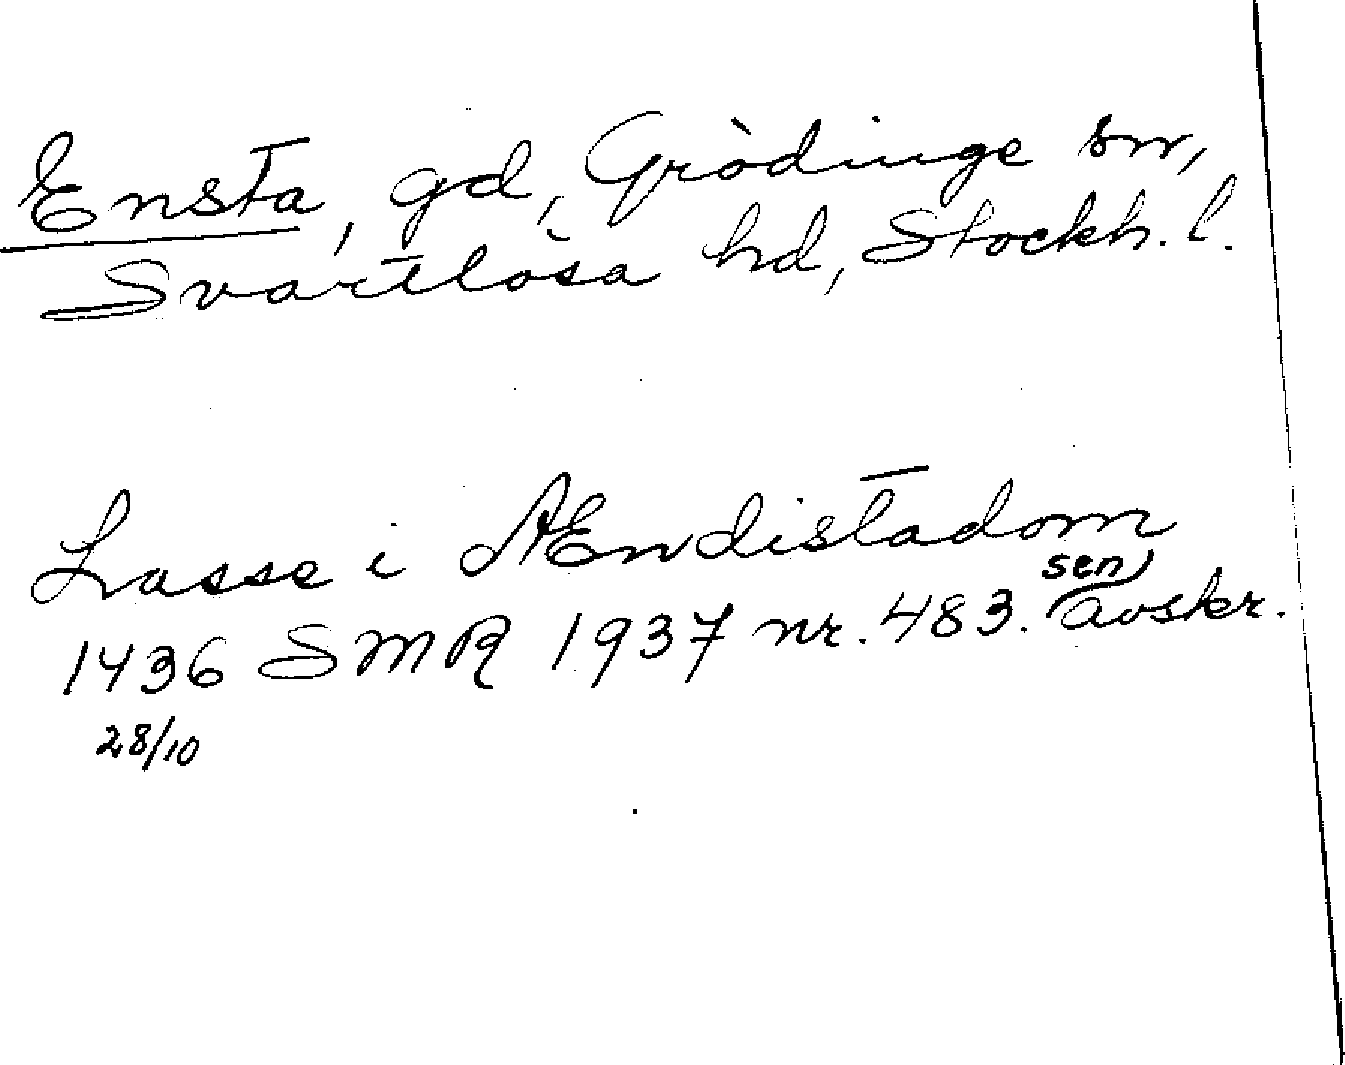 Ensta, gd, Grödinge sn,
Svartlösa hd, Stockh. l.
Lasse i Ændistadom
1436 SMR 1937 nr. 483. sen avskr.
28/10